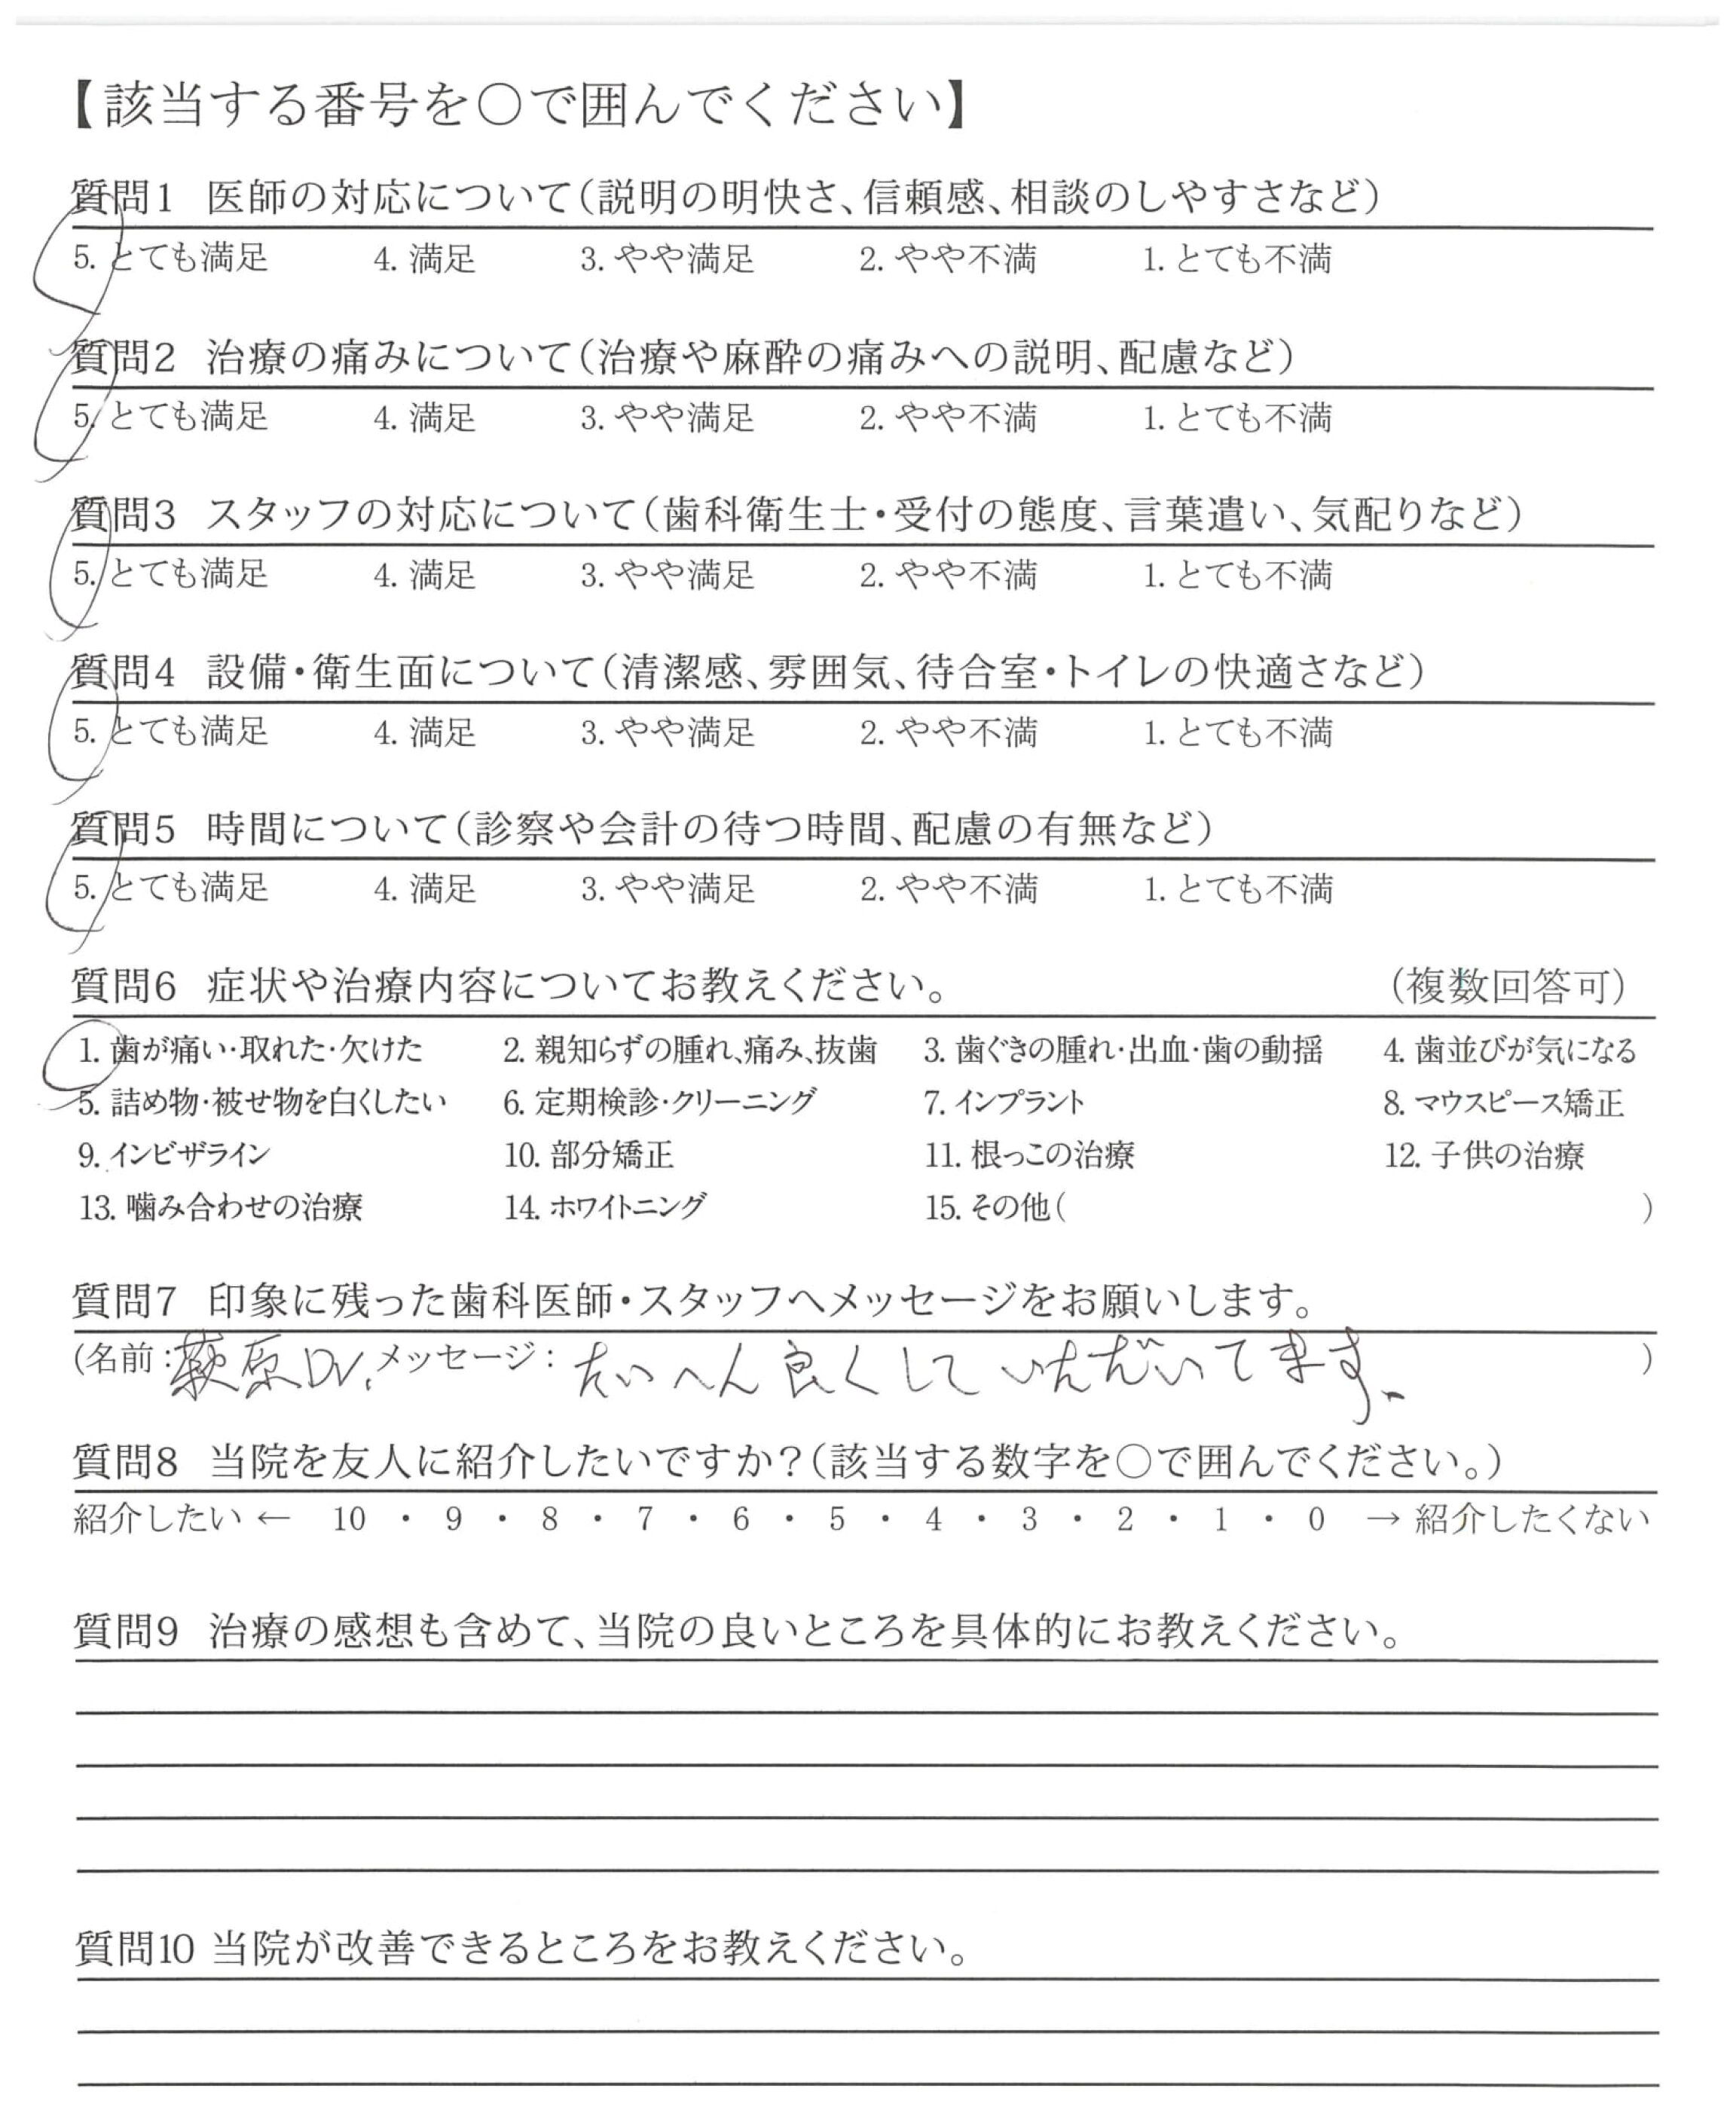 【該当する番号を〇で囲んでください】
質問1 医師の対応について(説明の明快さ、信頼感、相談のしやすさなど)
5. とても満足 4. 満足 3. やや満足 2. やや不満 1. とても不満
質問2 治療の痛みについて(治療や麻酔の痛みへの説明、配慮など)
5. とても満足 4. 満足 3. やや満足 2. やや不満 1. とても不満
質問3 スタッフの対応について(歯科衛生士・受付の態度、言葉遣い、気配りなど)
5. とても満足 4. 満足 3. やや満足 2. やや不満 1. とても不満
質問4 設備・衛生面について(清潔感、雰囲気、待合室・トイレの快適さなど)
5. とても満足 4. 満足 3. やや満足 2. やや不満 1. とても不満
質問5 時間について(診察や会計の待つ時間、配慮の有無など)
5. とても満足 4. 満足 3. やや満足 2. やや不満 1. とても不満
質問6 症状や治療内容についてお教えください。 (複数回答可)
1. 歯が痛い・取れた・欠けた 2. 親知らずの腫れ、痛み、抜歯 3. 歯ぐきの腫れ・出血・歯の動揺 4. 歯並びが気になる
5. 詰め物・被せ物を白くしたい 6. 定期検診・クリーニング 7. インプラント 8. マウスピース矯正
9. インビザライン 10. 部分矯正 11. 根っこの治療 12. 子供の治療
13. 噛み合わせの治療 14. ホワイトニング 15. その他( )
質問7 印象に残った歯科医師・スタッフへメッセージをお願いします。
(名前:萩原Dr. メッセージ:たいへん良くしていただいてます。 )
質問8 当院を友人に紹介したいですか?(該当する数字を〇で囲んでください。)
紹介したい ← 10 ・ 9 ・ 8 ・ 7 ・ 6 ・ 5 ・ 4 ・ 3 ・ 2 ・ 1 ・ 0 → 紹介したくない
質問9 治療の感想も含めて、当院の良いところを具体的にお教えください。
質問10 当院が改善できるところをお教えください。